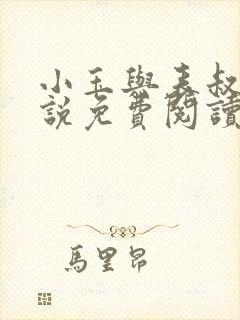 小玉與表叔
說免費閱讀
馬里昂